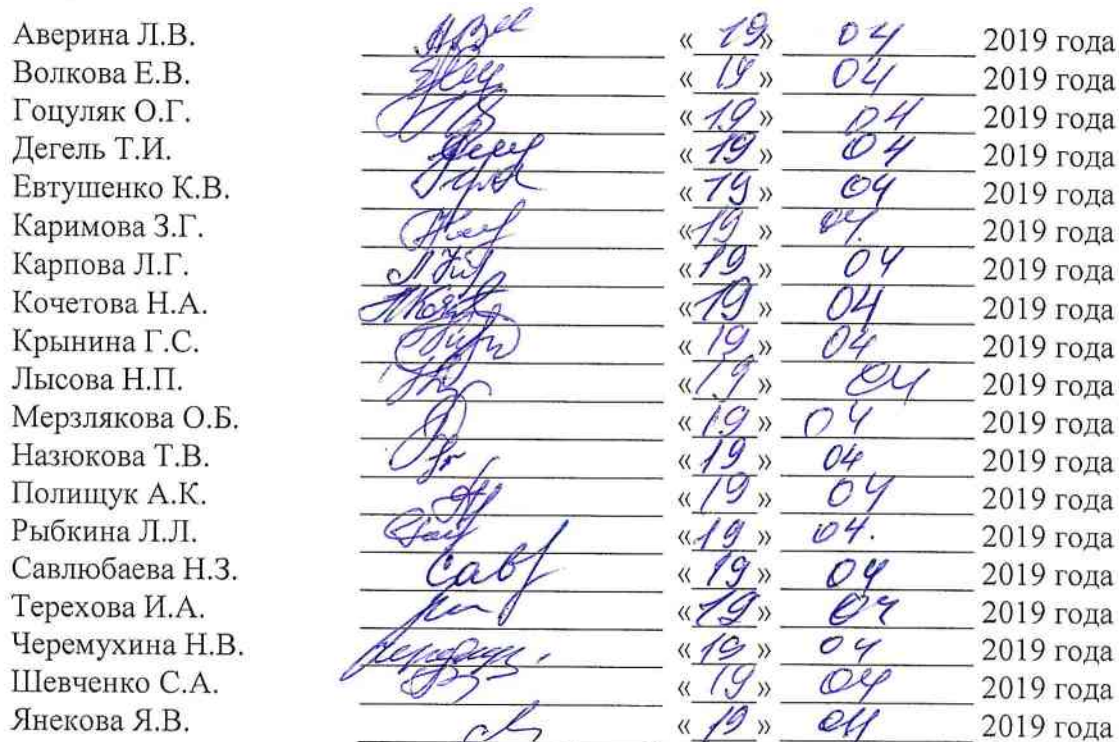 Аверина Л.В. « 19 » 04 2019 года
Волкова Е.В. « 19 » 04 2019 года
Гоцуляк О.Г. « 19 » 04 2019 года
Дегель Т.И. « 19 » 04 2019 года
Евтушенко К.В. « 19 » 04 2019 года
Каримова З.Г. « 19 » 04. 2019 года
Карпова Л.Г. « 19 » 04 2019 года
Кочетова Н.А. « 19 » 04 2019 года
Крынина Г.С. « 19 » 04 2019 года
Лысова Н.П. « 19 » 04 2019 года
Мерзлякова О.Б. « 19 » 04 2019 года
Назюкова Т.В. « 19 » 04 2019 года
Полищук А.К. « 19 » 04 2019 года
Рыбкина Л.Л. « 19 » 04. 2019 года
Савлюбаева Н.З. Сав « 19 » 04 2019 года
Терехова И.А. « 19 » 04 2019 года
Черемухина Н.В. « 19 » 04 2019 года
Шевченко С.А. « 19 » 04 2019 года
Янекова Я.В. « 19 » 04 2019 года